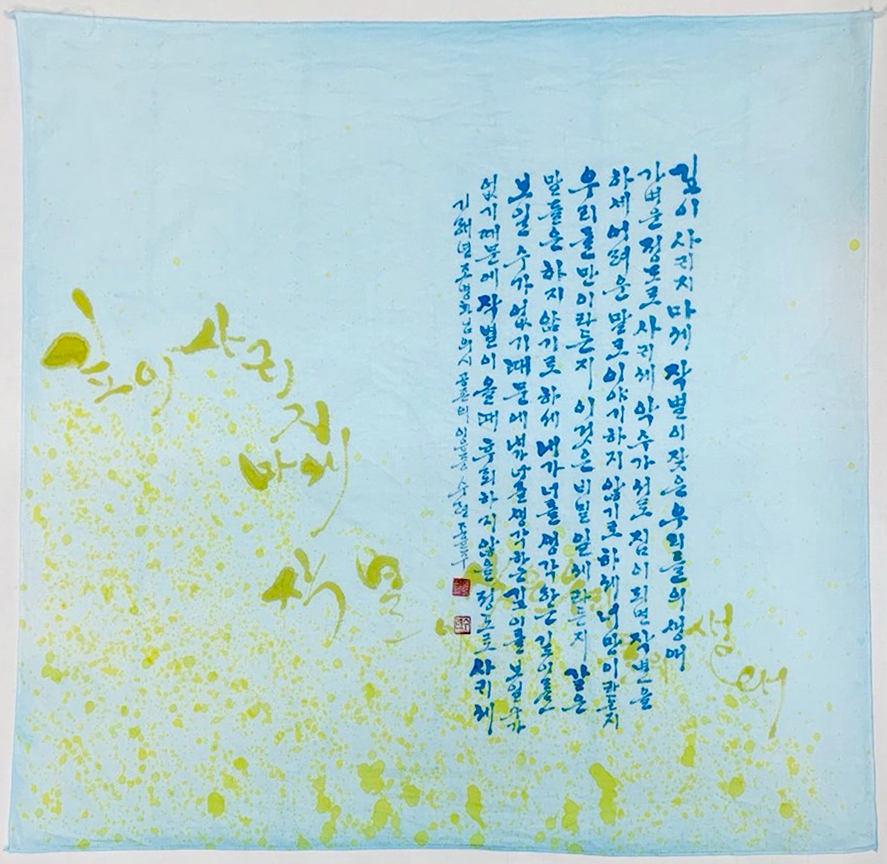 깊이 사귀지 마세 작별이 잦은 우리들의 생애
가벼운 정도로 사귀세 악수가 서로 짐이 되면 작별을
하세 어려운 말로 이야기하지 않기로 하세 너만이라든지
우리들만이라든지 이것은 비밀일세라든지 같은
말들은 하지 않기로 하세 내가 너를 생각하는 깊이를
보일 수가 없기 때문에 내가 나를 생각하는 깊이를 보일 수가
없기 때문에 작별이 올 때 후회하지 않을 정도로 사귀세
기해년 조병화님의 시 공존의 이유 중
깊이
사귀지
마세
작별
생애